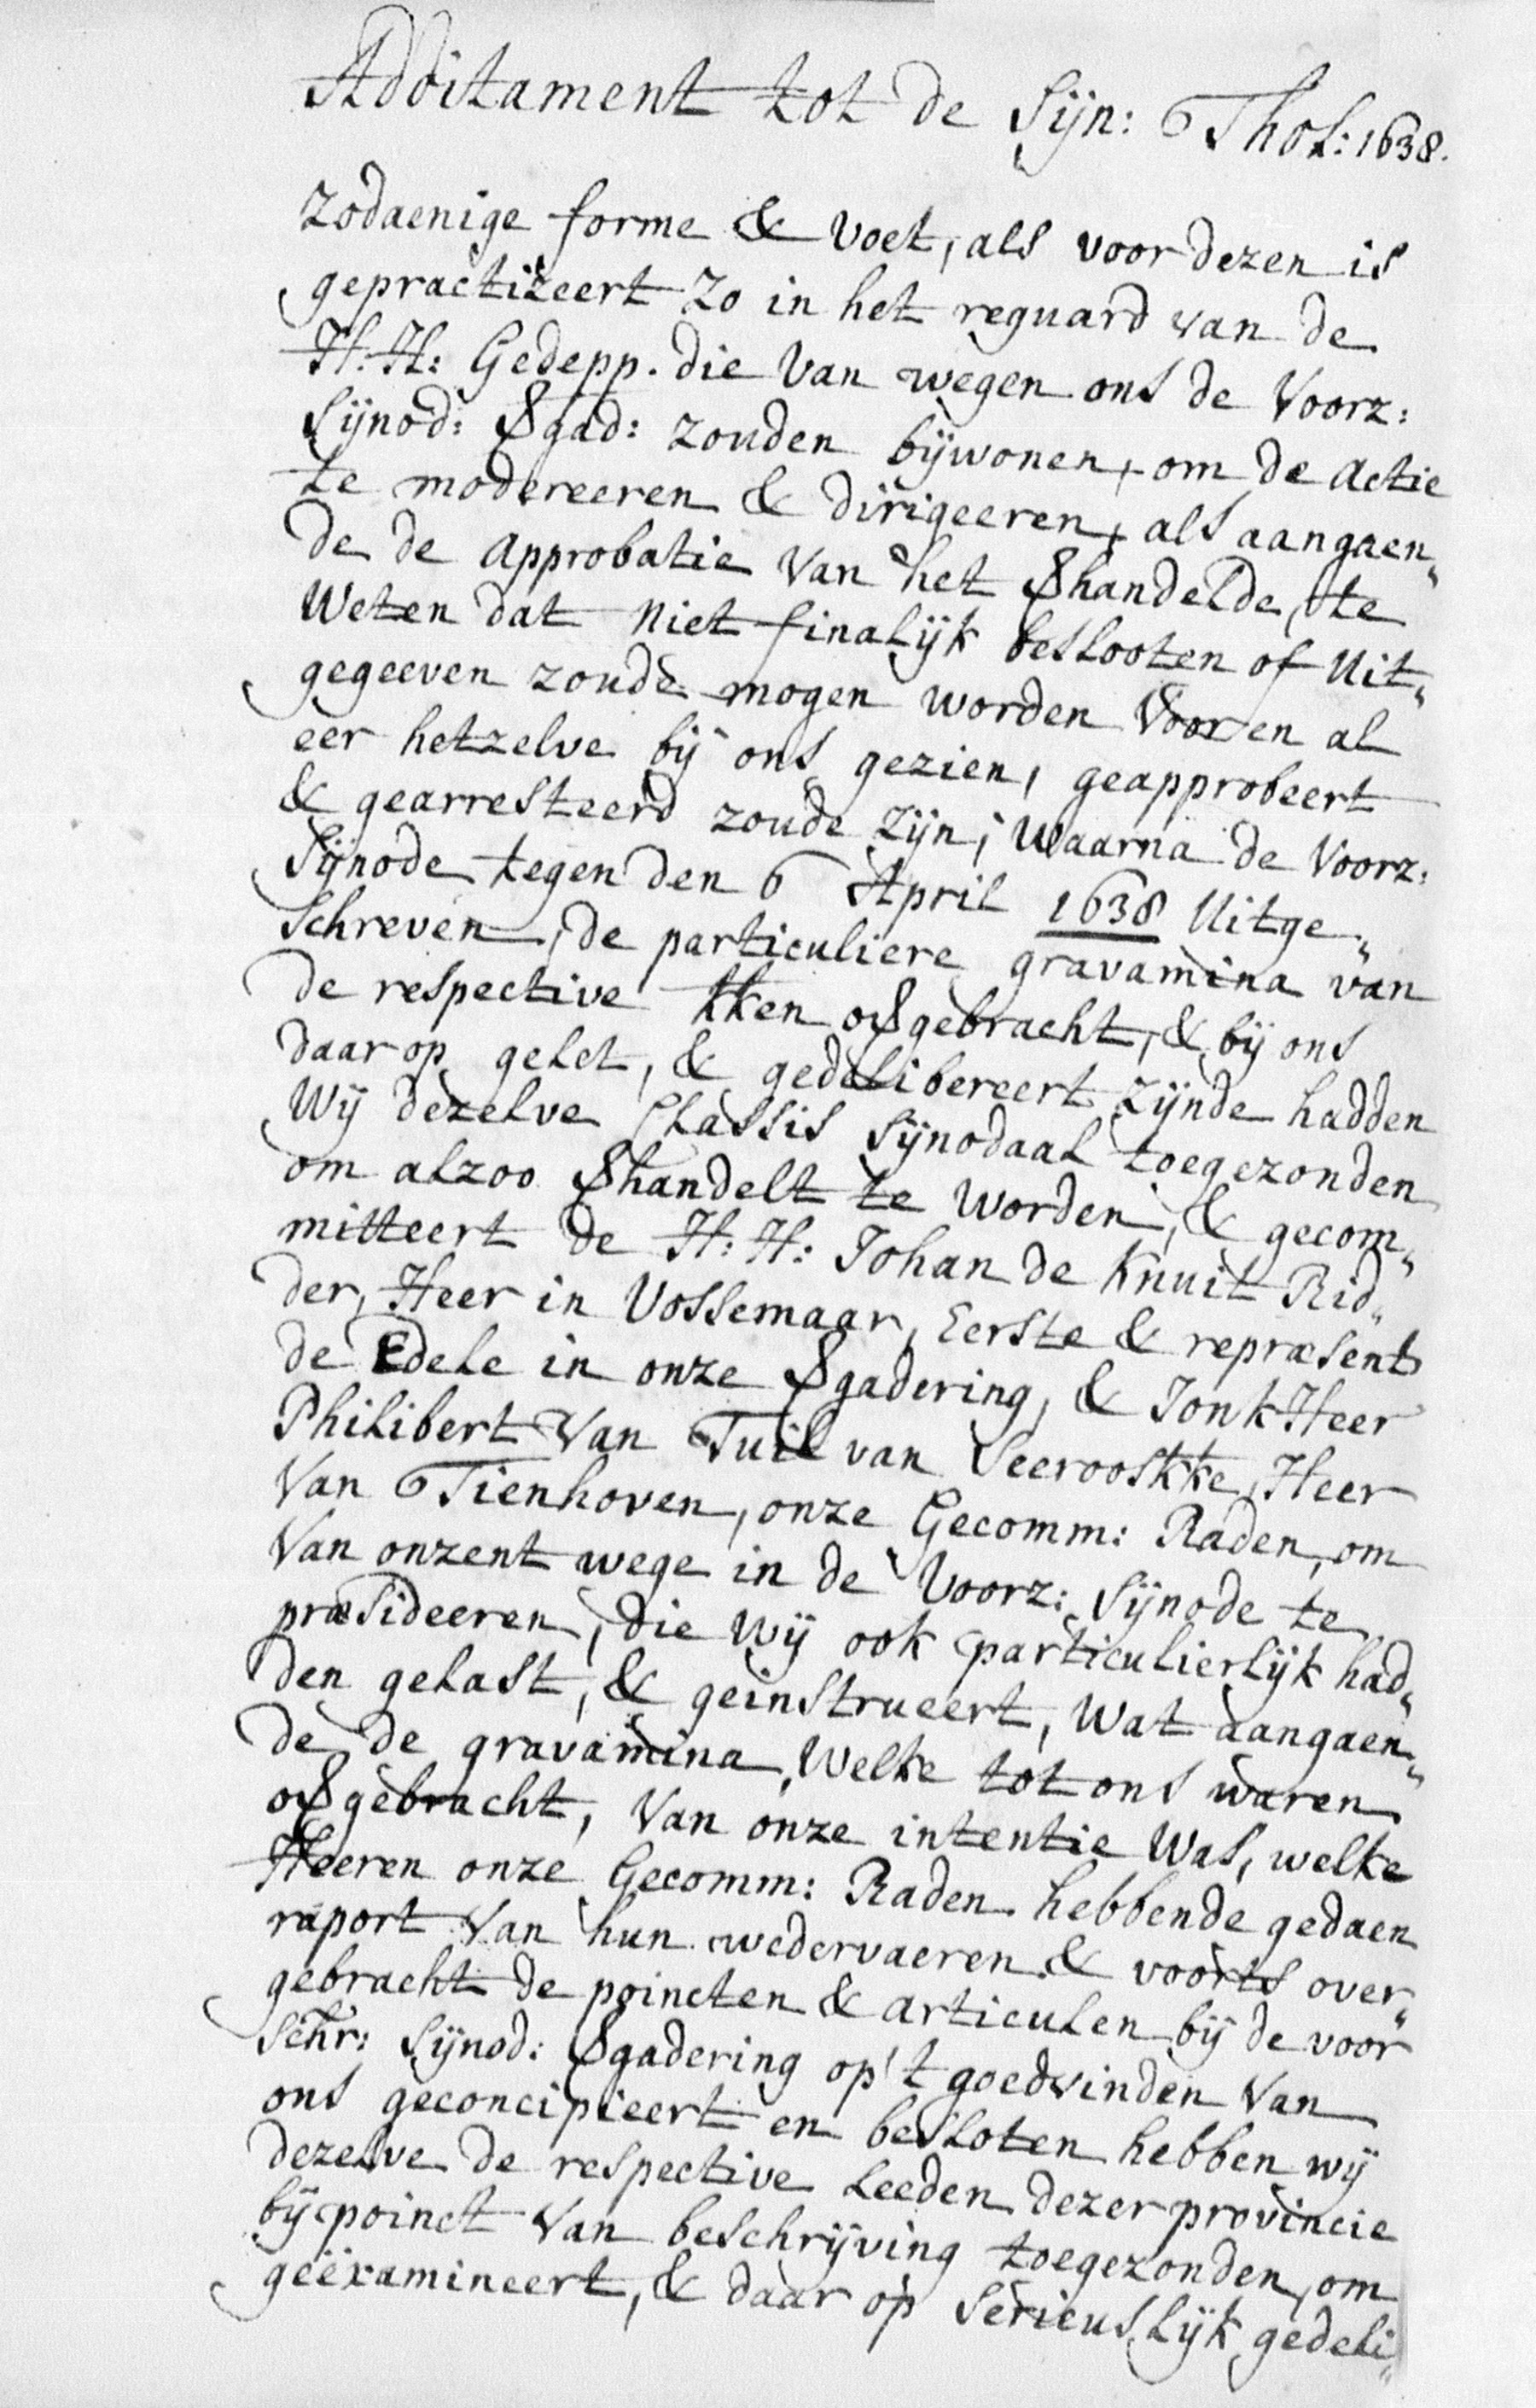 Additament tot de Sijn: Thol: 1638.
Zodaenige forme & voet, als voor dezen is
gepractizeert Zo in het reguard van de
H.H: Gedepp. die van wegen ons de Voorz:
Sijnod: Vgad: zouden bijwonen, om de actie
te modereeren & dirigeeren, als aangaen„
de de approbatie van het Vhandelde, te
Weten dat niet finalijk beslooten of Uit„
gegeeven zoude mogen worden Vooren al
eer hetzelve bij ons gezien, geapprobeert
& gearresteerd zoude zijn; Waarna de Voorz:
Sijnode tegen den 6 April 1638 Uitge„
schreven, de particuliere gravamina van
de respective kken oVgebracht, & bij ons
daar op gelet, & gedelibereert zijnde hadden
Wij dezelve Classis Sijnodaal toegezonden
om alzoo Vhandelt te Worden, & gecom„
mitteert de H: H: Johan de Knuit Rid„
der, Heer in Vossemaar, Eerste & repræsent
de Edele in onze Vgadering, & Jonk Heer
Philibert van Tuil van Seerooskke, Heer
Van Tienhoven, onze Gecomm: Raden, om
Van onzent wege in de Voorz: Sijnode te
præsideeren, die Wij ook particulierlijk had„
den gelast, & geinstrueert, Wat aangaen„
de de gravamina, Welke tot ons waren
oVgebracht, Van onze intentie Was, welke
Heeren onze Gecomm: Raden hebbende gedaen
raport Van hun wedervaeren & voorts over„
gebracht de poincten & articulen bij de voor
schr: Sijnod: Vgadering op't goedvinden Van
ons geconcipieert en besloten hebben wij
dezelve de respective Leeden dezer provincie
bij poinct Van beschrijving toegezonden, om
geëxamineert, & daar op Serieuslijk gedeli„